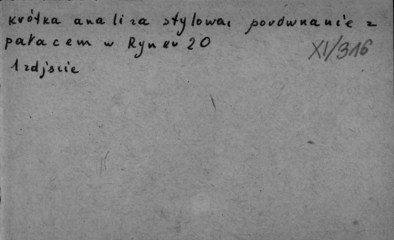 krótka analiza stylowa, porównanie z
pałacem w Rynku 20
XI/316
1 zdjęcie